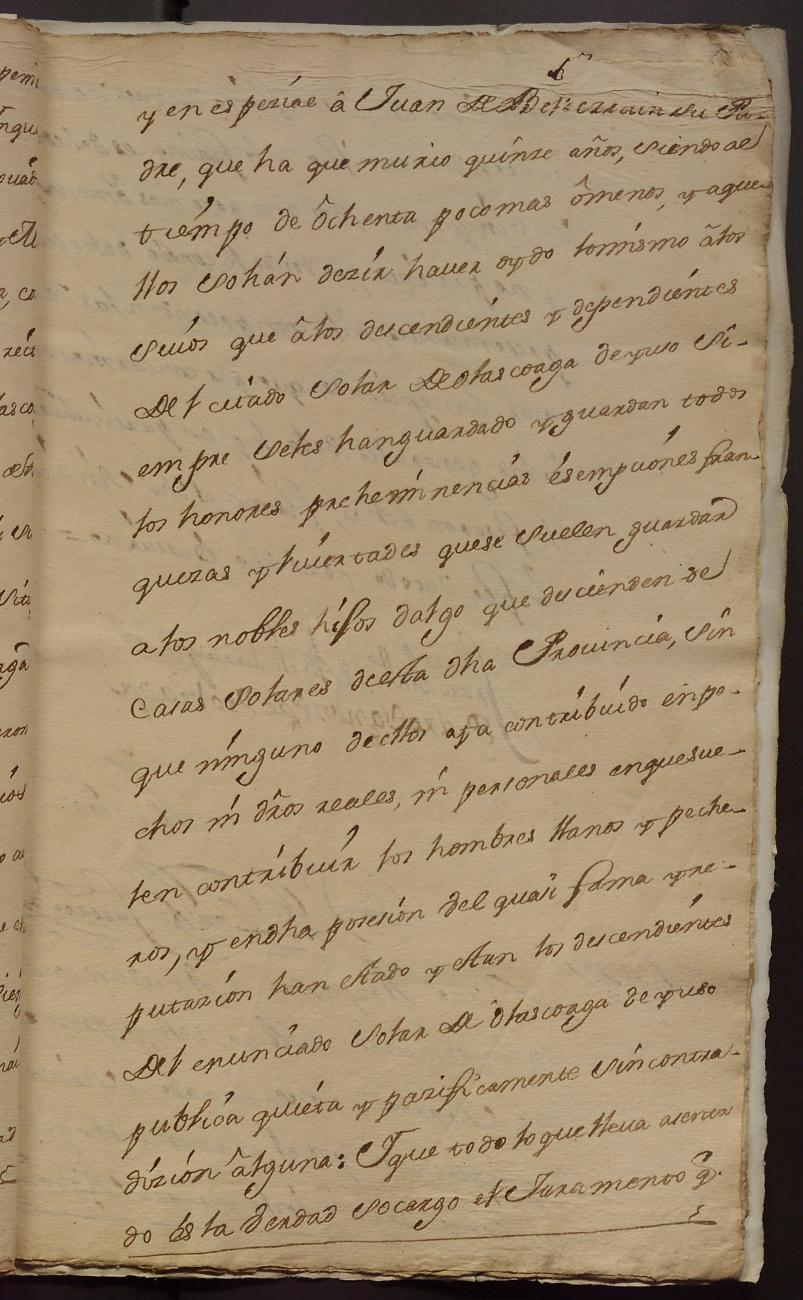 y en espezial â Juan de Bereterrain su Pa-
dre, que ha que murio quinze años, siendo de
tiempo de ôchenta poco mas ômenos, y aque-
llos sohán dezir haver oydo lomismo âlos
suios que âlos descendientes y dependientes
Del citado Solar De olascoaga de yuso si-
empre seles hanguardado y guardan todos
los honores preheminencias ésempciones fran-
quezas y livertades quese suelen guardar
a los nobles hijos dalgo que descienden de
Casas Solares deesta dha Provincia, sin
que ninguno de ellos aya contribuido enpe-
chos ni dros reales, ni personales enquesue-
len contribuir los hombres llanos y peche-
ros, y endha posesión del quasi fama y re-
putazión han estado y estan los descendientes
Del enunciado Solar De ôlascoaga de yuso
publica quieta y pazificamente sin contra-
dizión âlguna: Y que todo lo que lleva asenta
do és la verdad socargo el Juramento q̃.